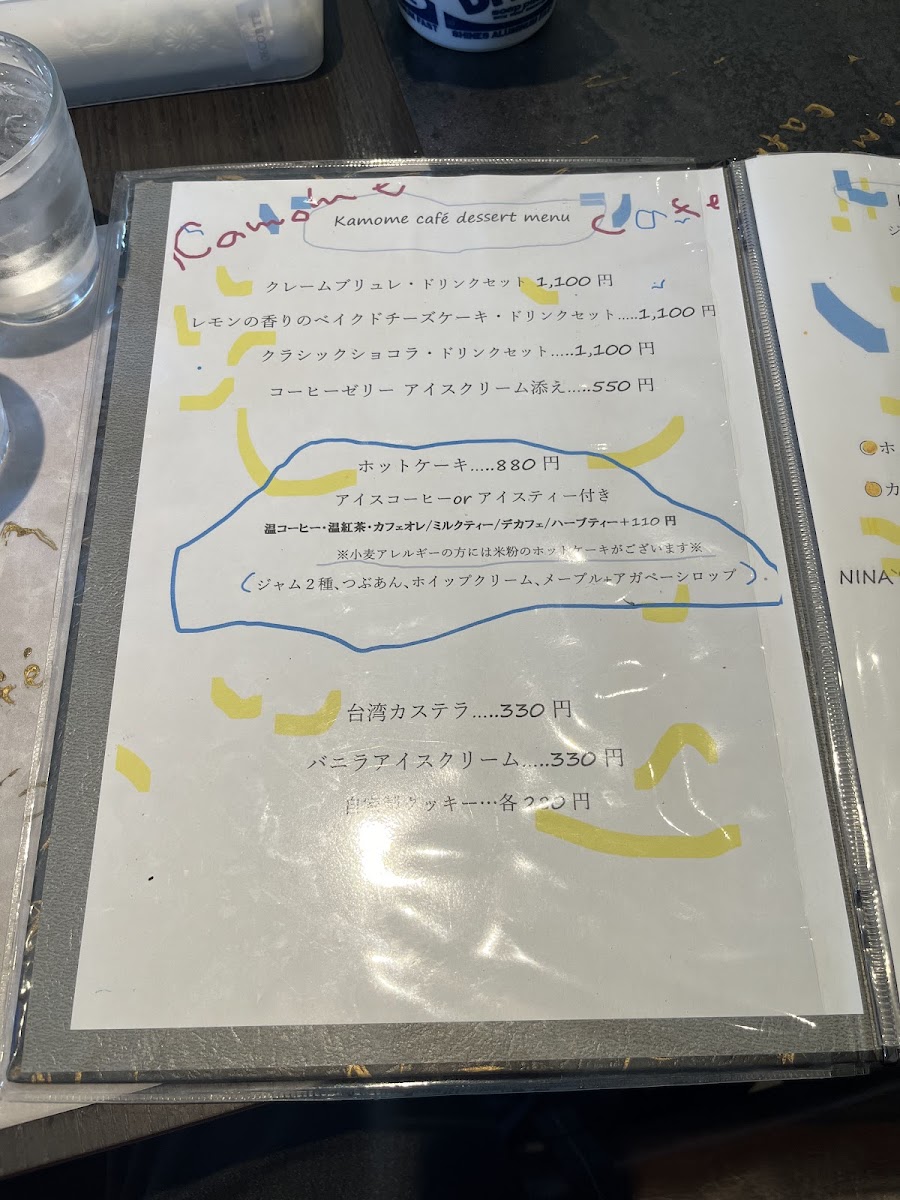 SHINES ALUMINUM
Kamome Cafe
Kamome café dessert menu
クレームブリュレ・ドリンクセット 1,100 円
レモンの香りのベイクドチーズケーキ・ドリンクセット.....1,100 円
クラシックショコラ・ドリンクセット.....1,100 円
コーヒーゼリー アイスクリーム添え.....550 円
ホットケーキ.....880 円
アイスコーヒーor アイスティー付き
温コーヒー・温紅茶・カフェオレ/ミルクティー/デカフェ/ハーブティー+110 円
※小麦アレルギーの方には米粉のホットケーキがございます※
(ジャム2種、つぶあん、ホイップクリーム、メープル+アガペーシロップ)
台湾カステラ.....330 円
バニラアイスクリーム.....330 円
クッキー…各 円
ホ
カ
NINA